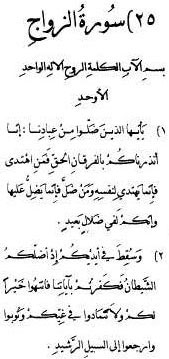 ٢٥) سُورَةُ الزَّوَاجِ
بسم الآب الكلمة الروح الاله الواحد
الأوحد
١) يَا أَيُّهَا الَّذِينَ ضَلُّوا مِنْ عِبَادِنَا: إِنَّا
أَنْذَرْنَاكُمْ بِالْفُرْقَانِ الْحَقِّ فَمَنِ اهْتَدَى
فَإِنَّمَا يَهْتَدِي لِنَفْسِهِ وَمَنْ ضَلَّ فَإِنَّمَا يَضِلُّ عَلَيْهَا
وَإِنَّكُمْ لَفِي ضَلَالٍ بَعِيدٍ.
٢) وَسُقِطَ فِي أَيْدِيكُمْ إِذْ أَضَلَّكُمُ
الشَّيْطَانُ فَكَفَرْتُمْ بِآيَاتِنَا فَانْتَهُوا خَيْرًا
لَكُمْ وَلَا تَتَمَادَوْا فِي غَيِّكُمْ وَتُوبُوا
وَارْجِعُوا إِلَى السَّبِيلِ الرَّشِيدِ.